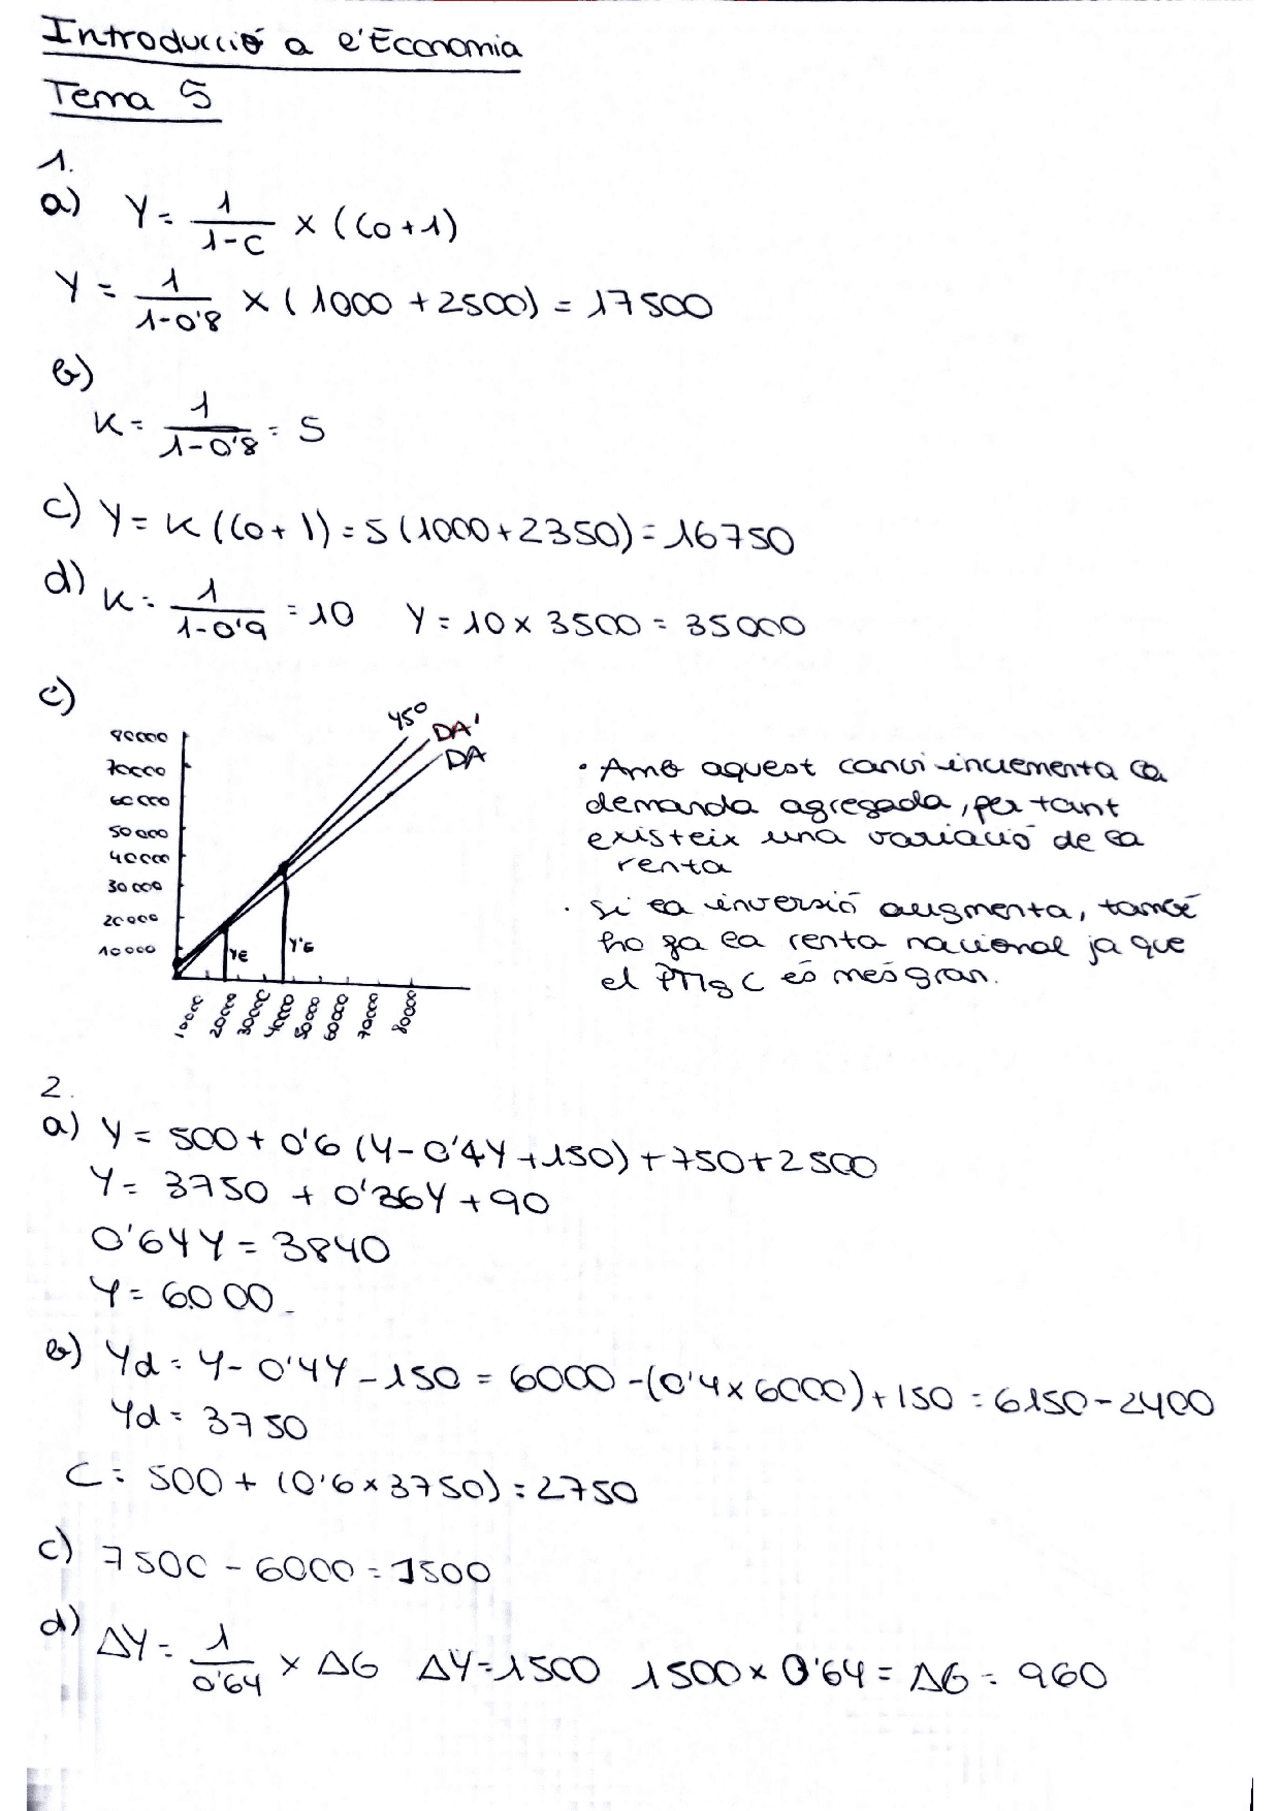 Introducció a l'Economia
Tema 5
1.
a) Y = 1/(1-C) x (Co+1)
Y = 1/(1-0'8) x (1000+2500) = 17500
b)
K = 1/(1-0'8) = 5
c) Y = K (Co+1) = 5(1000+2350) = 16750
d) K = 1/(1-0'9) = 10 Y = 10 x 3500 = 35000
e)
45º
DA'
DA
80000
70000
60000
50000
40000
30000
20000
10000
YE
Y'E
10000 20000 30000 40000 50000 60000 70000 80000
· Amb aquest canvi incrementa la
demanda agregada, per tant
existeix una variació de la
renta
· Si la inversió augmenta, també
ho fa la renta nacional ja que
el PMgC és més gran.
2.
a) Y = 500 + 0'6 (Y-0'4Y+150)+750+2500
Y = 3750 + 0'36Y+90
0'64Y = 3840
Y = 6000
b) Yd = Y-0'4Y-150 = 6000-(0'4x6000)+150 = 6150-2400
Yd = 3750
C = 500 + (0'6x3750) = 2750
c) 7500 - 6000 = 1500
d) ΔY = 1/0'64 x ΔG ΔY = 1500 1500x0'64 = ΔG = 960